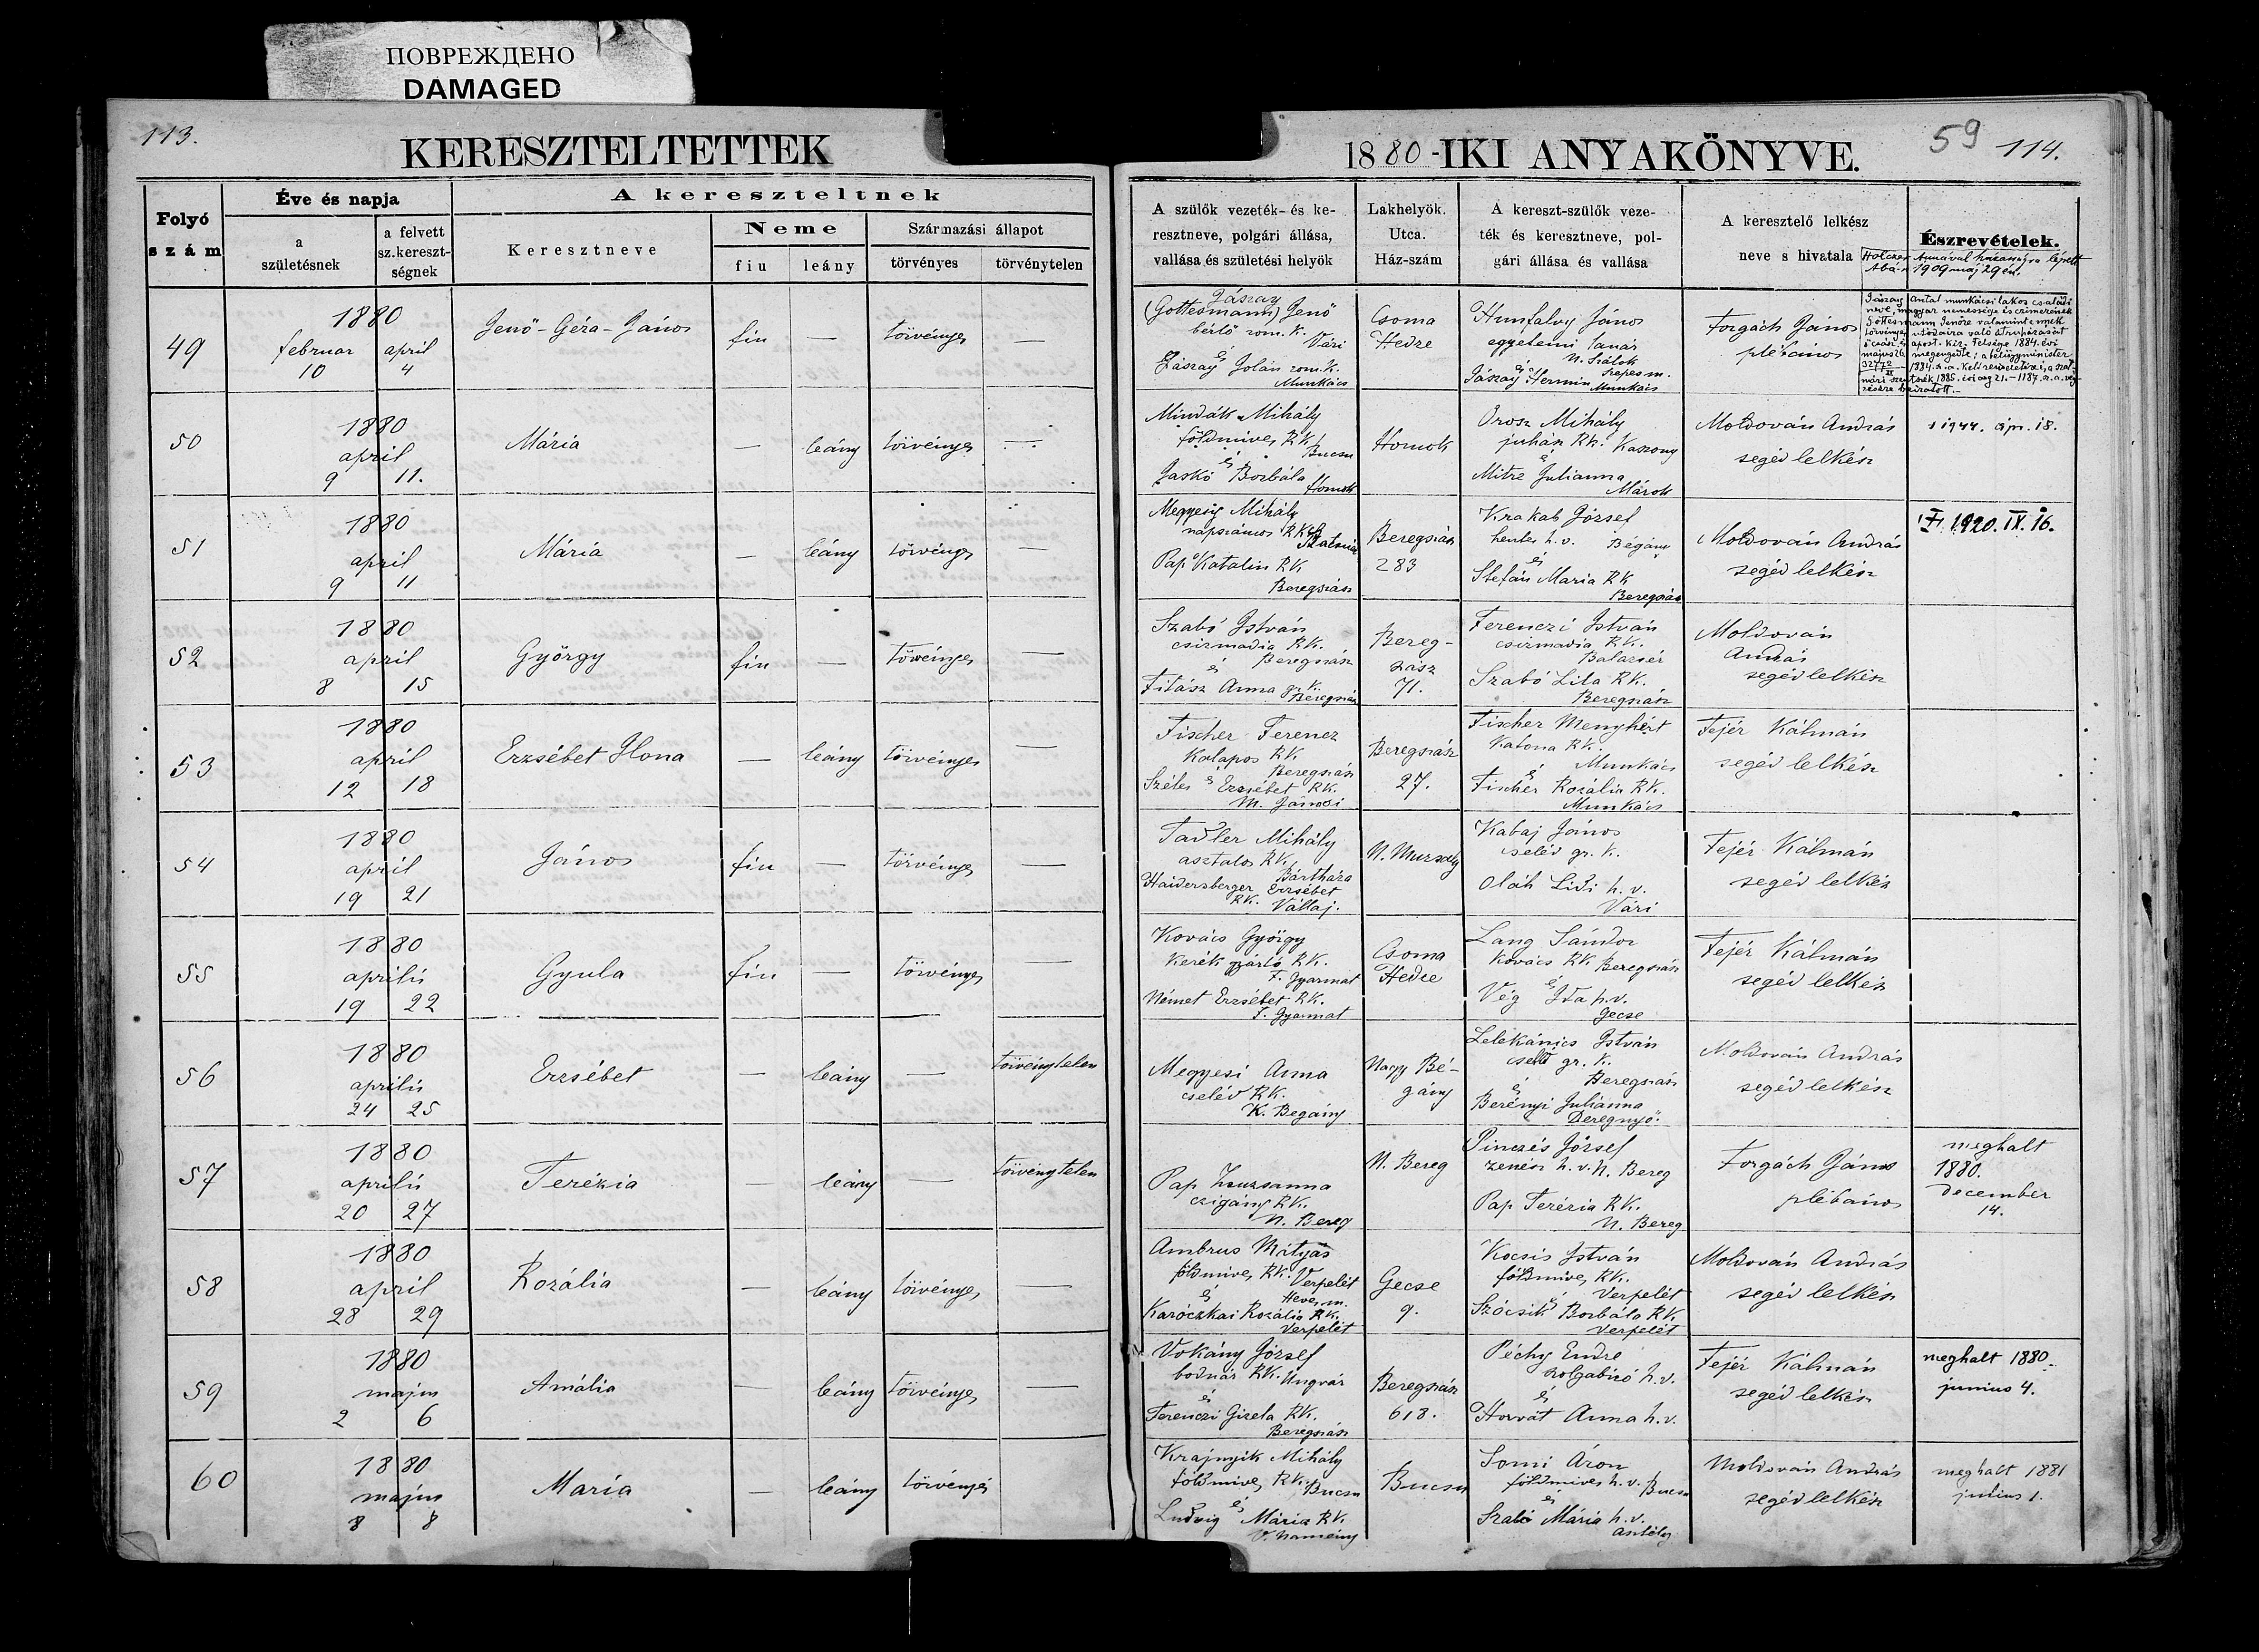 ПОВРЕЖДЕНО
DAMAGED
113.
KERESZTELTETTEK
Folyó
szám
Éve és napja
a
születésnek
a felvett
sz.kereszt-
ségnek
A kereszteltnek
Keresztneve
Neme
fiu
leány
Származási állapot
törvényes
törvénytelen
1880-IKI ANYAKÖNYVE.
59
114.
A szülők vezeték- és ke-
resztneve, polgári állása,
vallása és születési helyök
Lakhelyök.
Utca.
Ház-szám
A kereszt-szülők veze-
ték és keresztneve, pol-
gári állása és vallása
A keresztelő lelkész
neve s hivatala
Észrevételek.
Holczer Annával házasságra lépett
1909 máj 29 én.
49
1880
februar
10
april
4
Jenő-Géza-János
fiu
—
törvényes
—
Jászay
(Gottesmann) Jenő
bérlő rom. k.
Vári
és
Jászay Jolán rom. k.
Munkács
Csoma
Hedre
Hunfalvy János
egyetemi tanár
N. Szálok
Szepes m.
és
Jászay Hermin
Munkács
Forgách János
plébános
Jászay Antal munkácsi lakos családi
neve, magyar nemessége és czimerének
Gottesmann Jenőre valamint ennek
törvényes utódaira való átruházását
ő cs. és apost. kir. Felsége 1884. évi
május 26 megengedte; a belügyminister
32772
50
1880
april
9
11.
Mária
—
leány
törvényes
—
Mindák Mihály
földmives RK.
Bucsu
és
Jaskó Borbála
Homok
Homok
Orosz Mihály
juhász RK. Kaszony
és
Mitre Julianna
Márok
Moldován András
segéd lelkész
1944. ápr. 18.
51
1880
april
9
11
Mária
—
leány
törvényes
—
Megyesi Mihály
napszámos RK.
Pap Katalin RK
Beregszász
Beregszász
283
Krakab József
hentes h. v. Bégány
és
Stefán Maria RK
Beregszász
Moldován András
segéd lelkész
1920. IX. 16.
52
1880
april
8
15
György
fiu
—
törvényes
—
Szabó István
csizmadia RK.
Beregszász
és
Fitász Anna gr. k.
Beregszász
Bereg-
szász
71.
Ferenczi István
csizmadia RK.
Balazsér
Szabó Lila RK.
Beregszász
Moldován
András
segéd lelkész
53
1880
april
12
18
Erzsébet Ilona
—
leány
törvényes
—
Fischer Ferencz
Kalapos RK.
Beregszász
és
Széles Erzsébet RK.
M. Jánosi
Beregszász
27.
Fischer Menyhért
Katona RK.
Munkács
és
Fischer Rozália RK.
Munkács
Fejér Kálmán
segéd lelkész
54
1880
april
19
21
János
fiu
—
törvényes
—
Tadler Mihály
asztalos RK.
Bártháza
Haidersberger Erzsébet
RK. Vállaj.
N. Muzsaly
Kabaj János
cseléd gr. k.
Oláh Lidi h. v.
Vári
Fejér Kálmán
segéd lelkész
55
1880
április
19
22
Gyula
fiu
—
törvényes
—
Kovács György
Kerék gyártó RK.
F. Gyarmat
Német Erzsébet RK.
F. Gyarmat
Csoma
Hedre
Lang Sándor
Kovács RK Beregszász
és
Vég Ida h. v.
Gecse
Fejér Kálmán
segéd lelkész
56
1880
április
24
25
Erzsébet
—
leány
—
törvénytelen
Megyesi Anna
cseléd RK.
K. Begány
Nagy Bé-
gány
Lelekánics István
cseléd gr. k.
Beregszász
és
Berényi Julianna
Deregnyő.
Moldován András
segéd lelkész
57
1880
április
20
27
Terézia
—
leány
—
törvénytelen
Pap Zsuzsanna
czigány RK.
N. Bereg
N. Bereg
Pinczés József
zenész h. v. N. Bereg
Pap Terézia RK.
N. Bereg
Forgách János
plébános
meghalt
1880.
december
14.
58
1880
april
28
29
Rozália
—
leány
törvényes
—
Ambrus Mátyás
földmives RK. Verpelét
és
Heves m.
Karóczkai Rozália RK.
Verpelét
Gecse
9.
Kocsis István
földmives RK.
Verpelét
és
Szócsik Borbála RK.
Verpelét
Moldován András
segéd lelkész
59
1880
majus
2
6
Amália
—
leány
törvényes
—
Vokány József
bodnár RK. Ungvár
és
Ferenczi Gizela RK.
Beregszász
Beregszász
618.
Péchy Endre
szolgabiró h. v.
és
Horvát Anna h. v.
Fejér Kálmán
segéd lelkész
meghalt 1880.
junius 4.
60
1880
majus
8
8
Maria
—
leány
törvényes
Krajnyik Mihály
földmives RK. Bucsu
és
Ludvig Mária RK.
V. Namény
Bucsu
Somi Áron
földmives h. v. Bucsu
és
Szabó Mária h. v.
Asztély
Moldován András
segéd lelkész
meghalt 1881
julius 1.